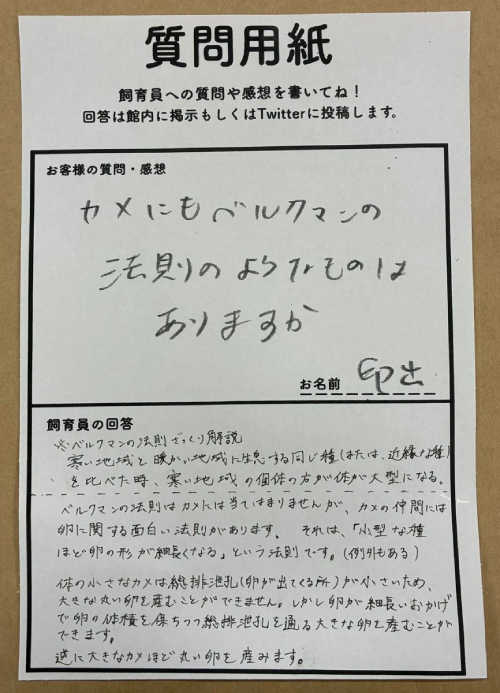 質問用紙
飼育員への質問や感想を書いてね！
回答は館内に掲示もしくはTwitterに投稿します。
お客様の質問・感想
カメにもベルクマンの
法則のようなものは
ありますか
お名前 印出
飼育員の回答
※ベルクマンの法則ざっくり解説
寒い地域と暖かい地域に生息する同じ種(または、近縁な種)
を比べた時、寒い地域の個体の方が体が大型になる。
ベルクマンの法則はカメには当てはまりませんが、カメの仲間には
卵に関する面白い法則があります。それは、「小型な種
ほど卵の形が細長くなる」という法則です。(例外もある)
体の小さなカメは総排泄孔(卵が出てくる所)が小さいため、
大きな丸い卵を産むことができません。しかし卵が細長いおかげ
で卵の体積を保ちつつ総排泄孔を通る大きな卵を産むことが
できます。
逆に大きなカメほど丸い卵を産みます。